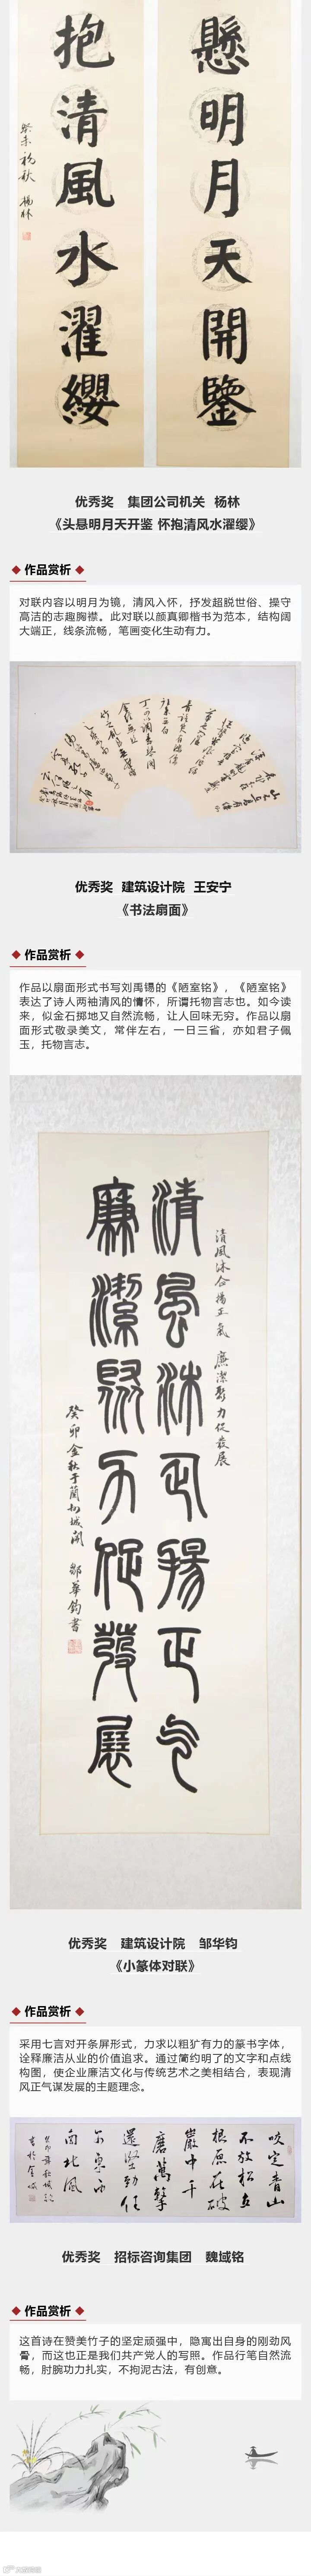 懸明月天開鑒
抱清風水濯纓
楊林
优秀奖 集团公司机关 杨林
《头悬明月天开鉴 怀抱清风水濯缨》
作品赏析
对联内容以明月为镜，清风入怀，抒发超脱世俗、操守
高洁的志趣胸襟。此对联以颜真卿楷书为范本，结构阔
大端正，线条流畅，笔画变化生动有力。
优秀奖 建筑设计院 王安宁
《书法扇面》
作品赏析
作品以扇面形式书写刘禹锡的《陋室铭》，《陋室铭》
表达了诗人两袖清风的情怀，所谓托物言志也。如今读
来，似金石掷地又自然流畅，让人回味无穷。作品以扇
面形式敬录美文，常伴左右，一日三省，亦如君子佩
玉，托物言志。
清風沐企揚正氣 廉潔聚力促發展
清風沐企揚正氣
廉潔聚力促發展
癸卯金秋于蘭州城關 鄒華鈞書
优秀奖 建筑设计院 邹华钧
《小篆体对联》
作品赏析
采用七言对开条屏形式，力求以粗犷有力的篆书字体，
诠释廉洁从业的价值追求。通过简约明了的文字和点线
构图，使企业廉洁文化与传统艺术之美相结合，表现清
风正气谋发展的主题理念。
咬定青山
不放松立
根原在破
巖中千
磨萬擊
還堅勁任
尔東西
南北風
优秀奖 招标咨询集团 魏域铭
作品赏析
这首诗在赞美竹子的坚定顽强中，隐寓出自身的刚劲风
骨，而这也正是我们共产党人的写照。作品行笔自然流
畅，肘腕功力扎实，不拘泥古法，有创意。